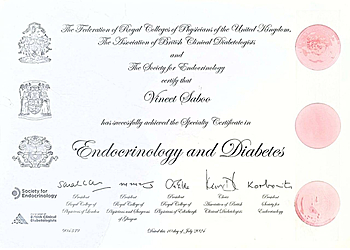 The Federation of Royal Colleges of Physicians of the United Kingdom,
The Association of British Clinical Diabetologists
and
The Society for Endocrinology
certify that
Vineet Saboo
has successfully achieved the Specialty Certificate in
Endocrinology and Diabetes
Society for
Endocrinology
President
Royal College of
Physicians of London
President
Royal College of
Physicians and Surgeons
of Glasgow
President
Royal College of
Physicians of Edinburgh
Chair
Association of British
Clinical Diabetologists
President
Society for
Endocrinology
Association of
British Clinical
Diabetologists
Dated this 10 day of July 2024